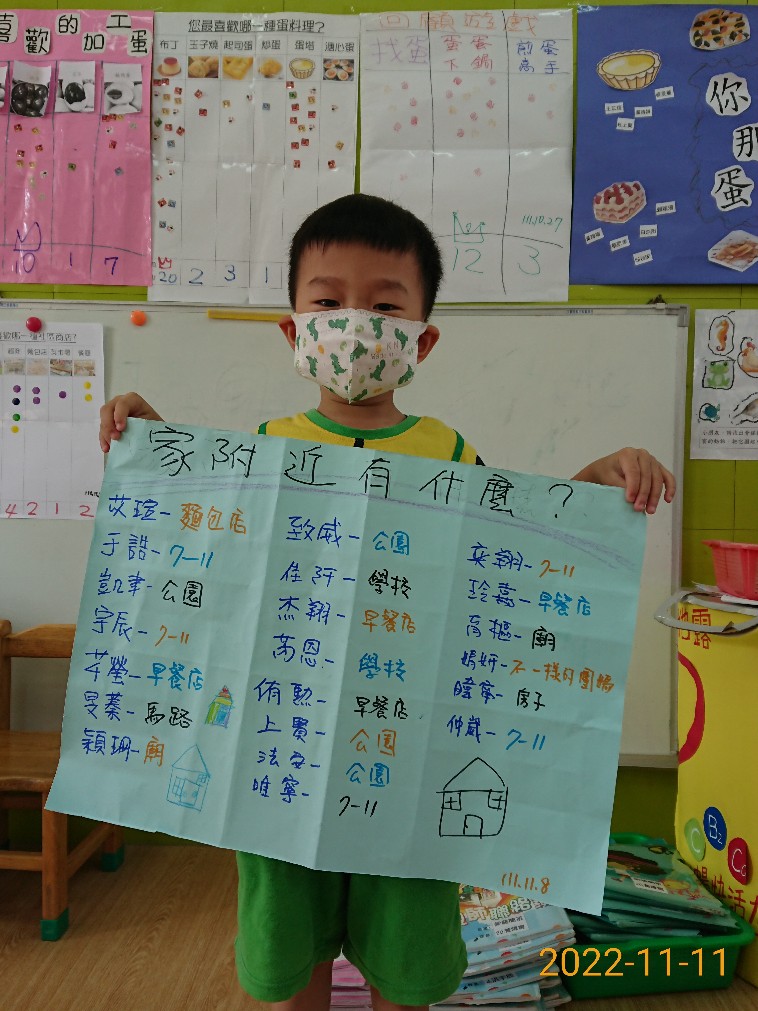 喜歡的加工蛋
10
1
7
您最喜歡哪一種蛋料理?
布丁 玉子燒 起司蛋 炒蛋 蛋塔 溏心蛋
20 2 3 1
回顧遊戲
找蛋 蛋蛋下鍋 煎蛋高手
111.10.27
12 3
你那蛋
歡哪一種社區商店?
4 2 1 2
家附近有什麼?
苡瑄-麵包店
于誥-7-11
凱聿-公園
宇辰-7-11
芊瑩-早餐店
旻蓁-馬路
穎珊-廟
致威-公園
佳阡-學校
杰翔-早餐店
芮恩-學校
侑勳-早餐店
上賈-公園
法安-公園
唯寧-7-11
奕翔-7-11
玲嘉-早餐店
育樞-廟
娟妍-不一樣的圍牆
暐寧-房子
仲葳-7-11
111.11.8
露
C
B2
Ca
2022-11-11